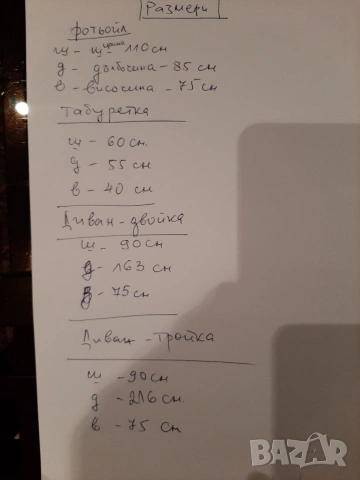 Размери
фотьойл
ш - ширина 110 см
д - дълбочина - 85 см
в - височина - 75 см
Табуретка
ш - 60 см.
д - 55 см
в - 40 см
Диван - двойка
ш - 90 см
д - 163 см
в - 75 см
Диван - тройка
ш - 90 см
д - 216 см.
в - 75 см
BAZAR